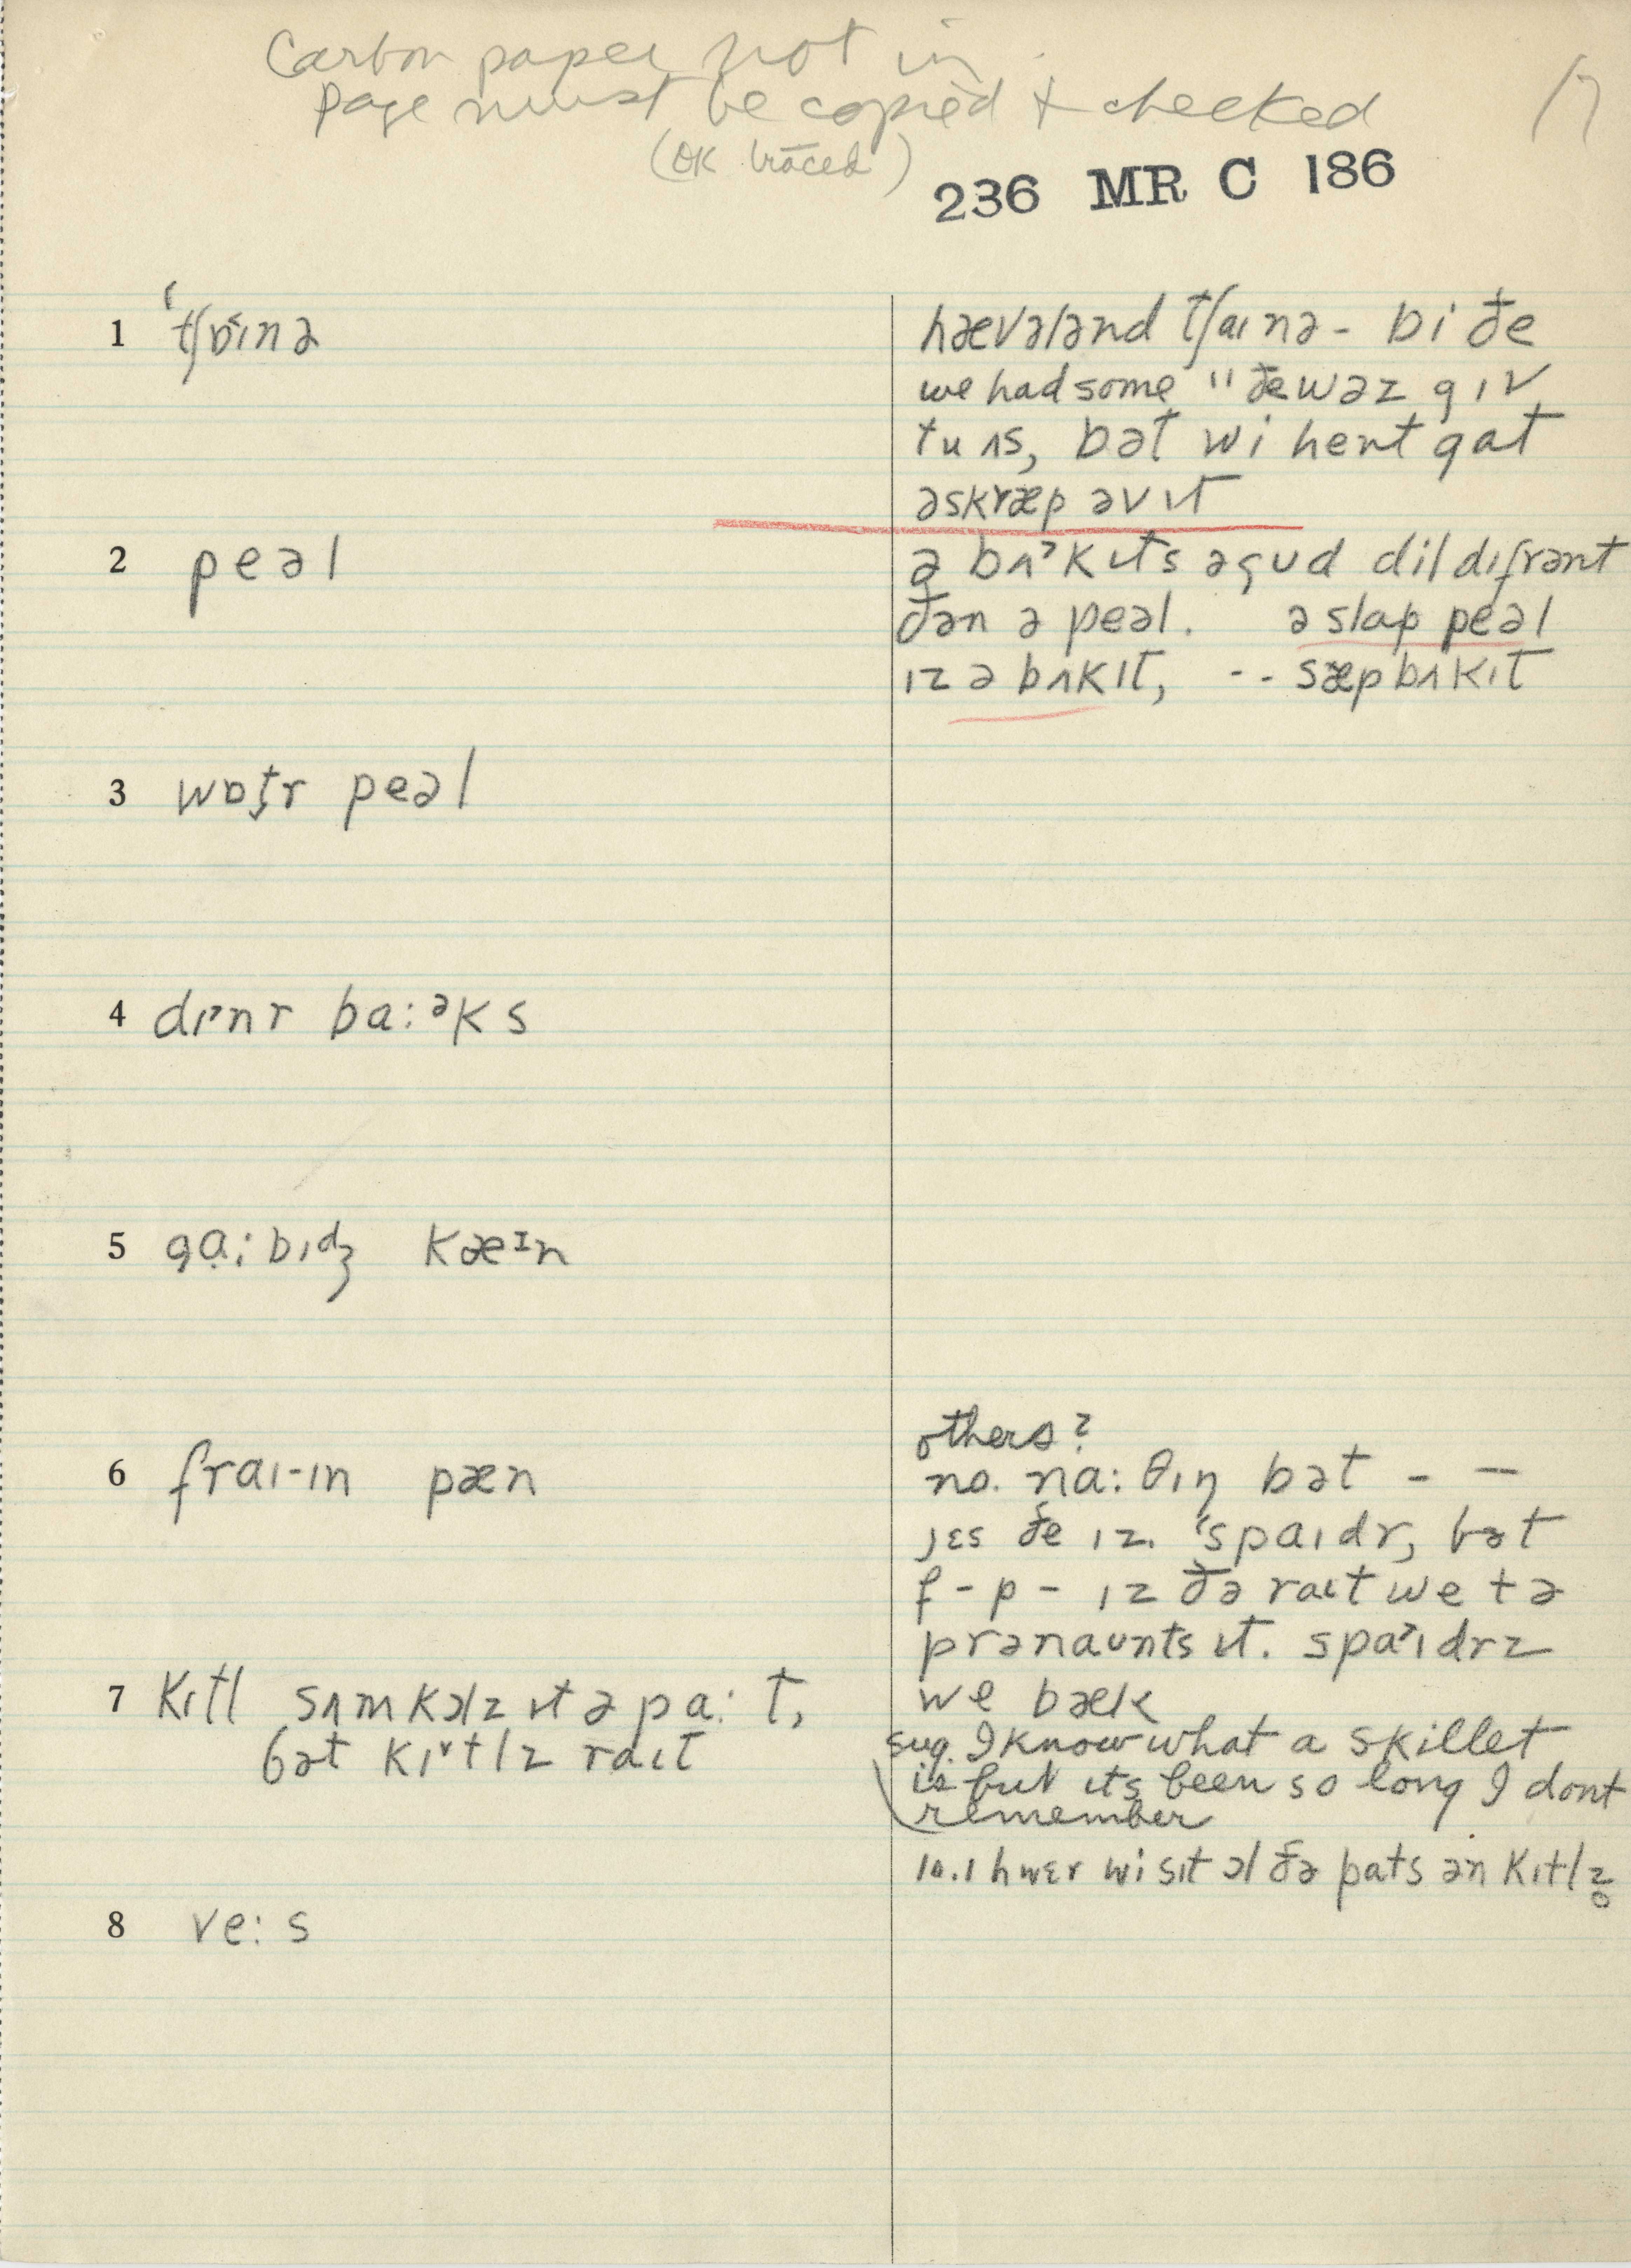 Carbon paper not in
page must be copied & checked
17
(OK traced)
236 MR C 186
1 ˈtʃɒ˂ɪnə
hævələnd tʃaɪnə - bi ðe
we had some " ðe wəz gɪv
tu ʌs, bət wi hent gat
ə skræp əv ɪt
2 peəl
ə bʌ˃kɪts ə gud dil dɪfrənt
ðən ə peəl. ə slap peəl
ɪz ə bʌkɪt, -- sæp bʌkɪt
3 wɒt̬r peəl
4 dɪ˃nr ba:ᵊks
5 gɑ̣:bɪdʒ kæᶦn
6 fraɪ-ɪn pæn
others?
no. na:θɪŋ bət - —
jɛs ðe ɪz. ˈspaɪdr, bət
f - p - ɪz ðə raɪt we tə
prənaʊnts ɪt. spa˃ɪdrz
we bæk
7 kɪtl sʌm kɔlz ɪt ə pa:t,
bət kɪ˅tlz raɪt
sug. I know what a skillet
is but its been so long I dont
remember
10.1 hwɛr wi sɪt ɔl ðə pats ən kɪtlz̥
8 ve:s